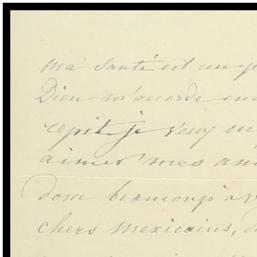 ma santé est un p
Dieu m'accorde en
repit je veux en
aimer mes am
dont beaucoup à v
chers mexicains, d